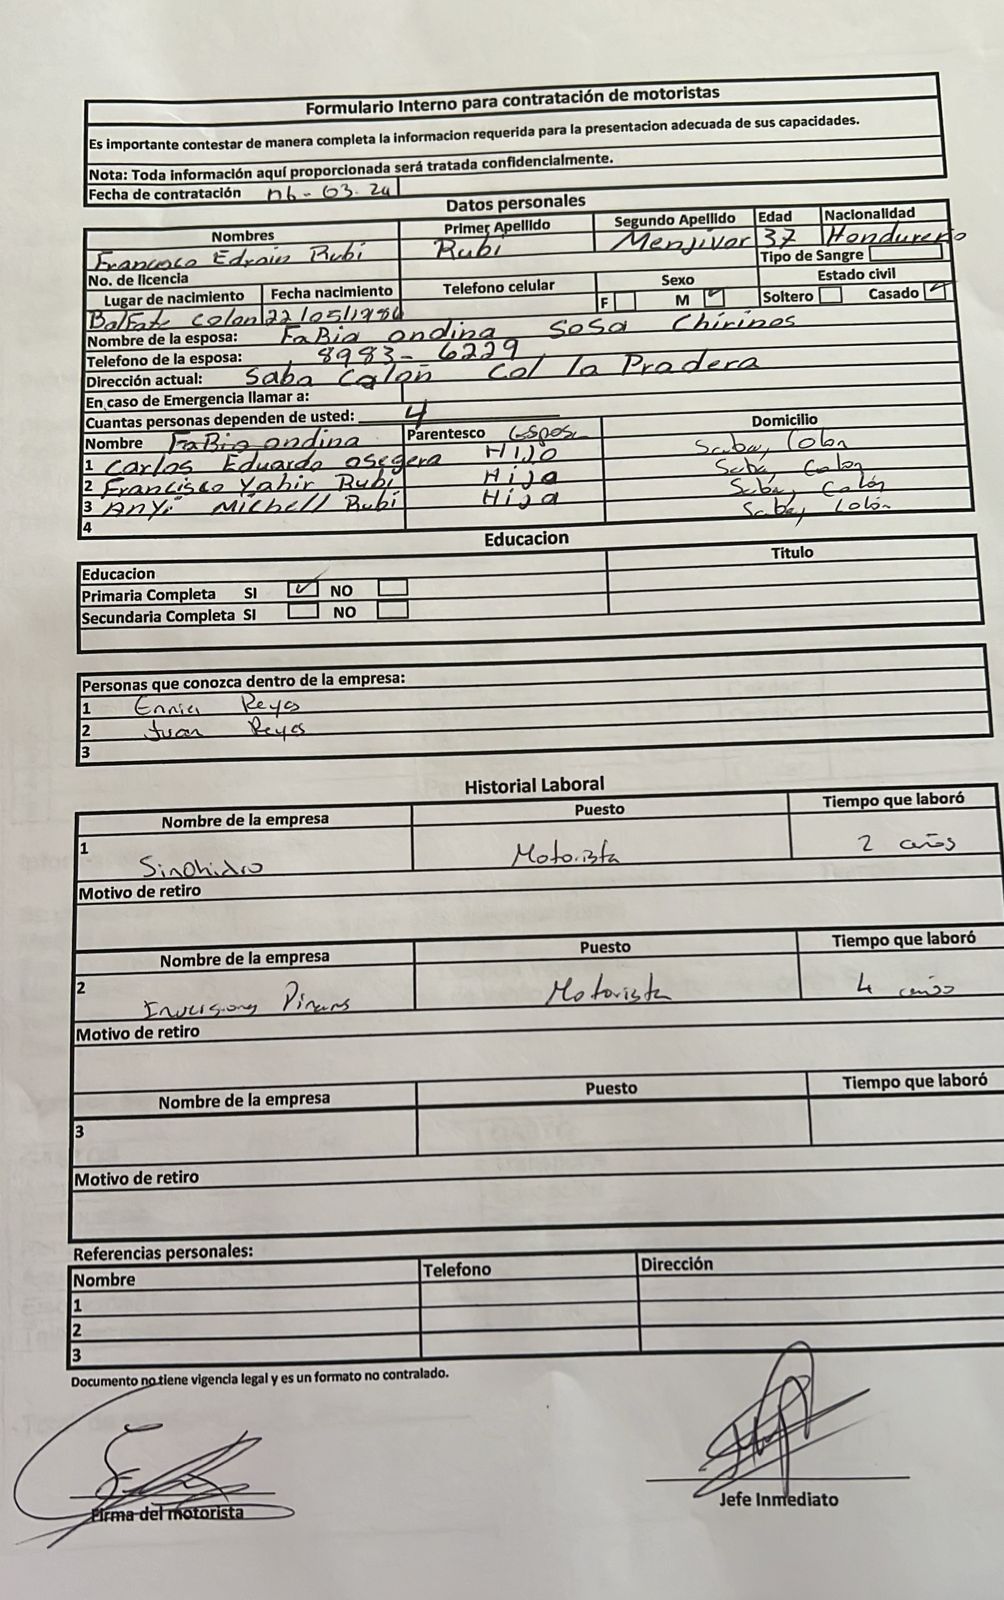 Formulario Interno para contratación de motoristas
Es importante contestar de manera completa la informacion requerida para la presentacion adecuada de sus capacidades.
Nota: Toda información aquí proporcionada será tratada confidencialmente.
Fecha de contratación 06-03-24
Datos personales
Nombres Primer Apellido Segundo Apellido Edad Nacionalidad
Francisco Edrain Rubi Rubi Menjivar 37 Hondureño
No. de licencia Tipo de Sangre
Lugar de nacimiento Fecha nacimiento Telefono celular Sexo Estado civil
Balfate Colon 22/05/1986 F M Soltero Casado
Nombre de la esposa: FaBia ondina Sosa Chirinos
Telefono de la esposa: 8983-6229
Dirección actual: Saba Colon Col la Pradera
En caso de Emergencia llamar a:
Cuantas personas dependen de usted: 4
Nombre FaBia ondina Parentesco Esposa Domicilio
Saba, Colon
1 Carlos Eduardo osegera Hijo Saba, Colon
2 Francisco Yahir Rubi Hija Saba, Colón
3 Anyi Michell Rubi Hija Saba, Colón
4
Educacion
Educacion Titulo
Primaria Completa SI NO
Secundaria Completa SI NO
Personas que conozca dentro de la empresa:
1 Reyes
2 Juan Reyes
3
Historial Laboral
Nombre de la empresa Puesto Tiempo que laboró
1 Sinohidro Motorista 2 años
Motivo de retiro
Nombre de la empresa Puesto Tiempo que laboró
2 Motorista 4 años
Motivo de retiro
Nombre de la empresa Puesto Tiempo que laboró
3
Motivo de retiro
Referencias personales:
Nombre Telefono Dirección
1
2
3
Documento no tiene vigencia legal y es un formato no contralado.
Firma del motorista Jefe Inmediato